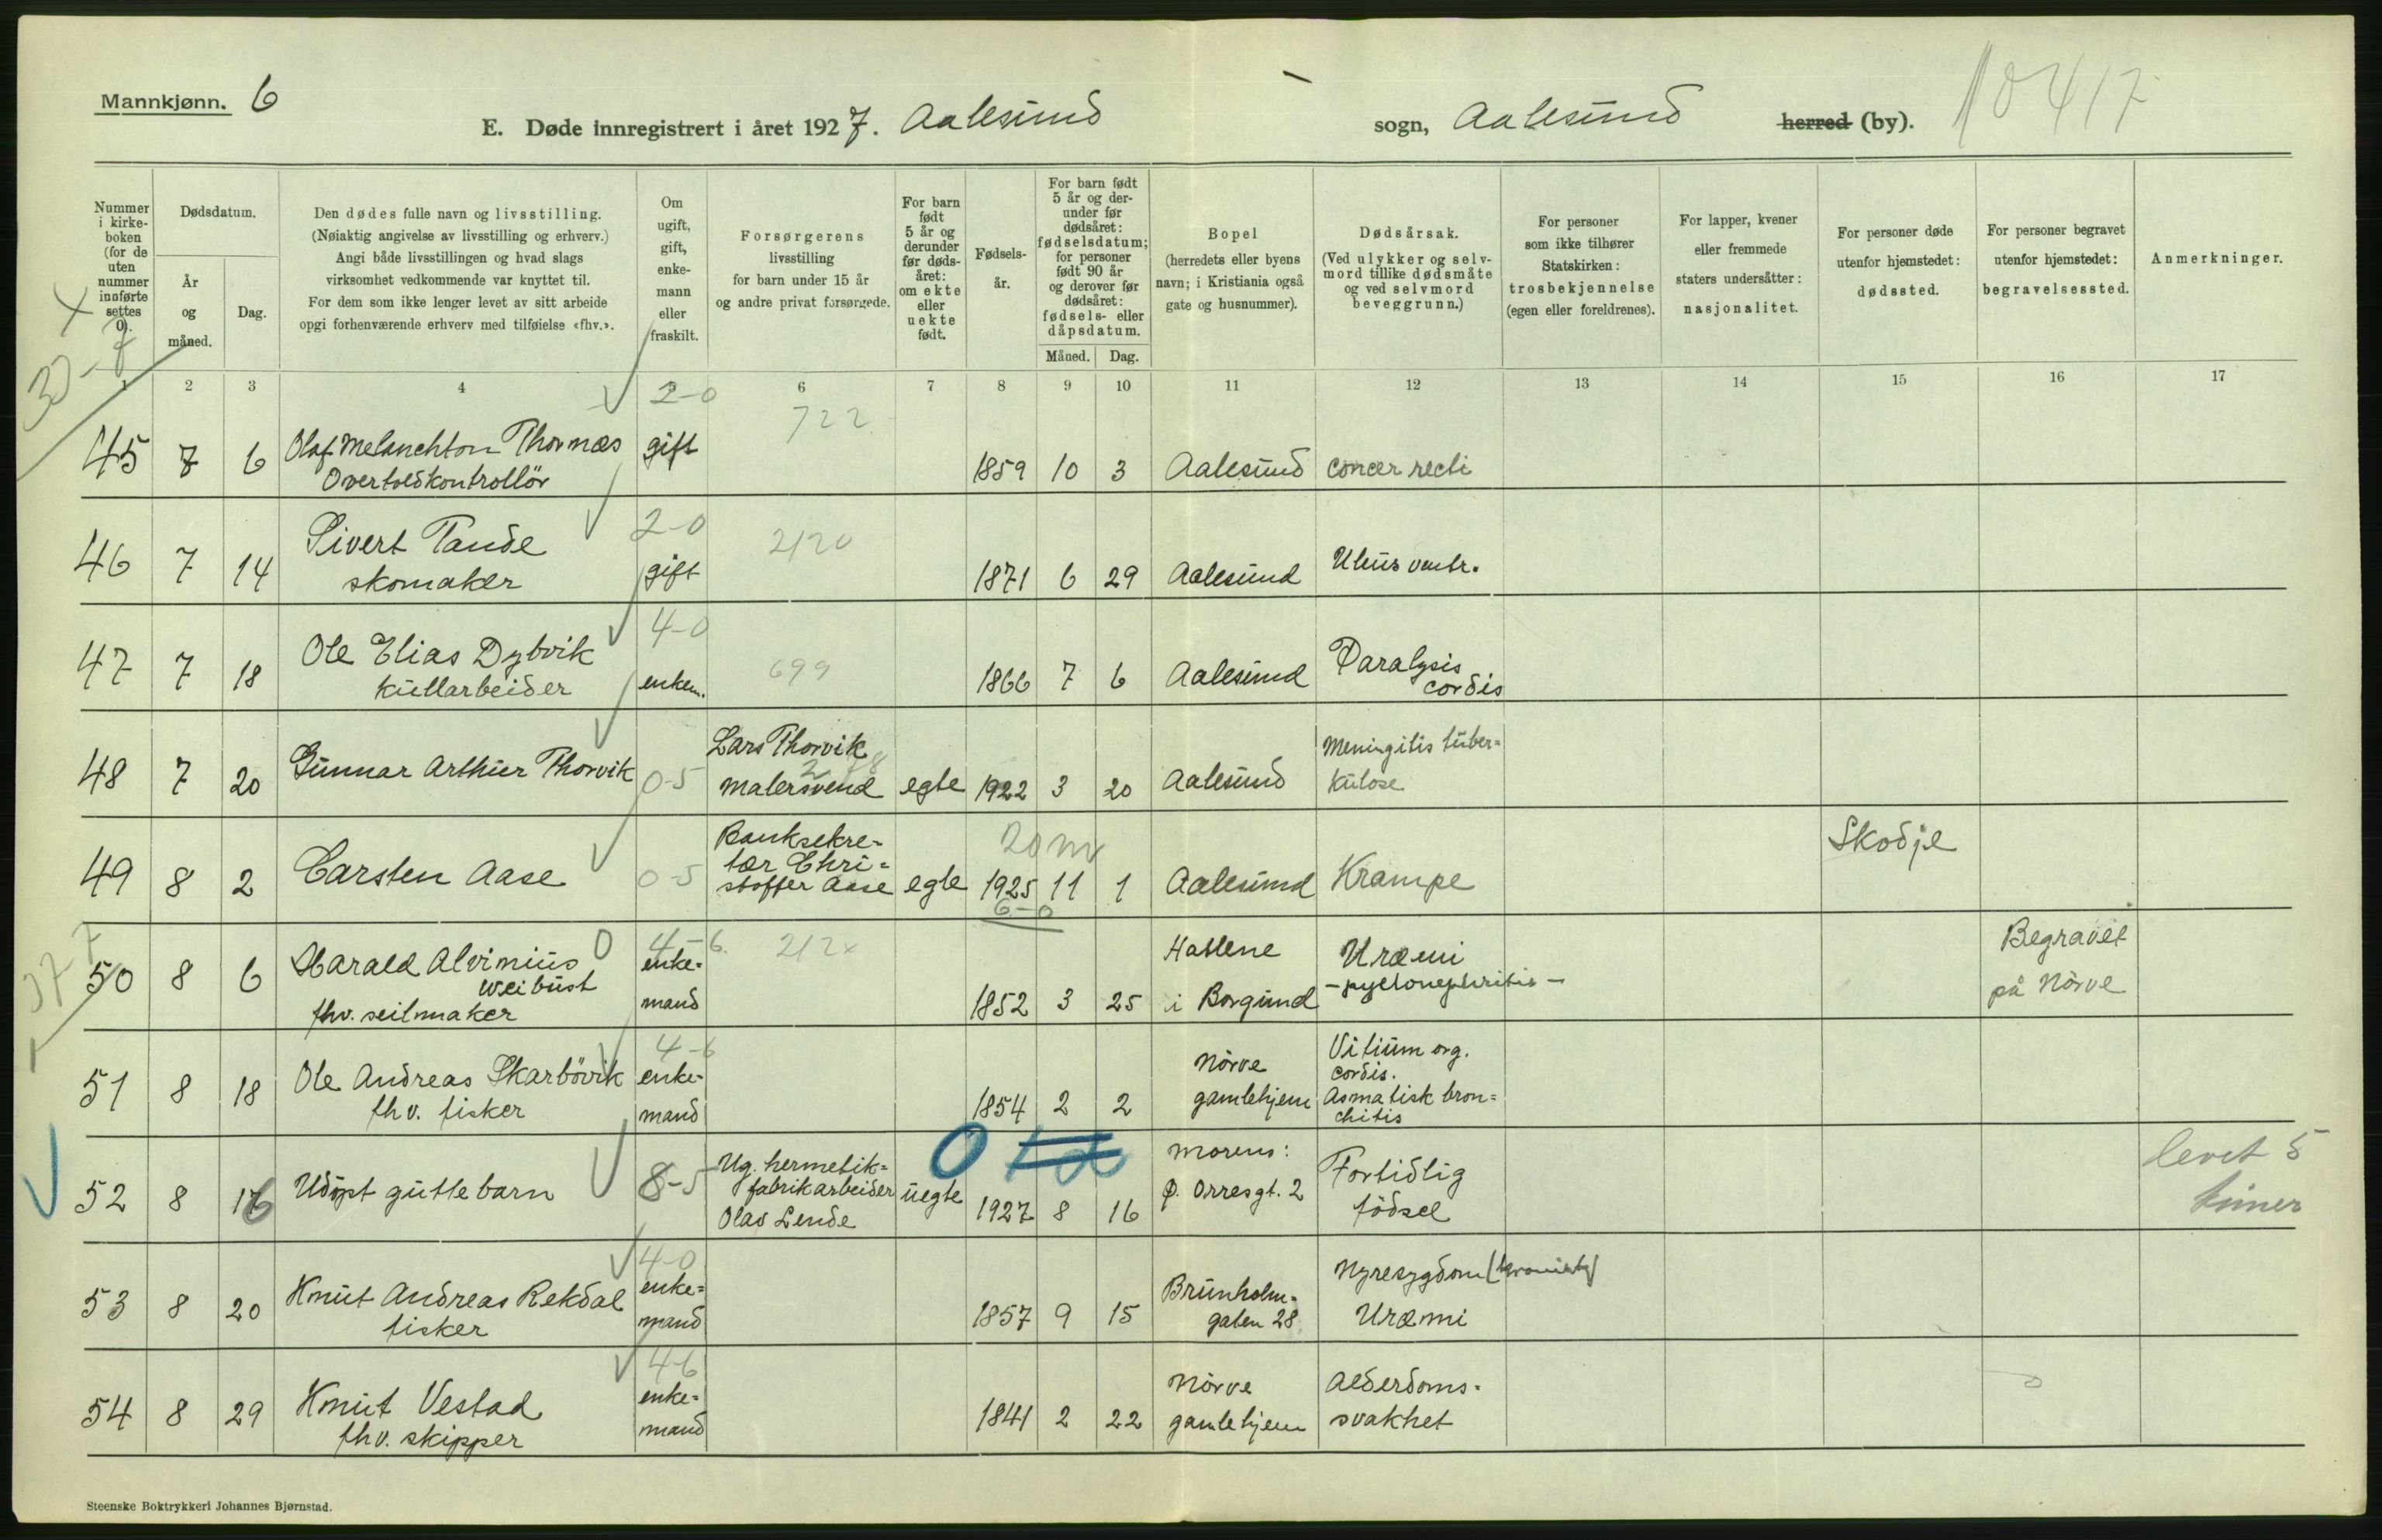 Mannkjønn. 6
E. Døde innregistrert i året 1927. Aalesund sogn, Aalesund herred (by). 10417
Nummer i kirkeboken (for de uten nummer innførte settes 0).
Dødsdatum.
År og måned.
Dag.
Den dødes fulle navn og livsstilling.
(Nøiaktig angivelse av livsstilling og erhverv.)
Angi både livsstillingen og hvad slags
virksomhet vedkommende var knyttet til.
For dem som ikke lenger levet av sitt arbeide
opgi forhenværende erhverv med tilføielse «fhv.».
Om ugift, gift, enkemann eller fraskilt.
Forsørgerens livsstilling
for barn under 15 år
og andre privat forsørgede.
For barn født 5 år og derunder før dødsåret: om ekte eller uekte født.
Fødselsår.
For barn født 5 år og derunder før dødsåret: fødselsdatum; for personer født 90 år og derover før dødsåret: fødsels- eller dåpsdatum.
Måned. Dag.
Bopel
(herredets eller byens
navn; i Kristiania også
gate og husnummer).
Dødsårsak.
(Ved ulykker og selvmord tillike dødsmåte
og ved selvmord
beveggrunn.)
For personer
som ikke tilhører
Statskirken:
trosbekjennelse
(egen eller foreldrenes).
For lapper, kvener
eller fremmede
staters undersåtter:
nasjonalitet.
For personer døde
utenfor hjemstedet:
dødssted.
For personer begravet
utenfor hjemstedet:
begravelsessted.
Anmerkninger.
1 2 3 4 6 7 8 9 10 11 12 13 14 15 16 17
2-0 722
45 7 6 Olaf Melanchton Thormæs gift 1859 10 3 Aalesund Cancer recti
Overtoldkontrollör
2-0 2120
46 7 14 Sivert Tande gift 1871 6 29 Aalesund Ulcus ventr.
skomaker
4-0 699
47 7 18 Ole Elias Dybvik enkem. 1866 7 6 Aalesund Paralysis
kullarbeider cordis
48 7 20 Gunnar Arthur Thorvik 0-5 Lars Thorvik
malersvend egte 1922 3 20 Aalesund Meningitis tuber=
kulose
49 8 2 Carsten Aase 0-5 Banksekre-
tær Chri=
stoffer Aase egte 1925 11 1 Aalesund Krampe Skodje
20 m
6-0
4-6. 212x
50 8 6 Harald Alvinius 0 enke= Hatlene Uræmi Begravet
Weibust mand 1852 3 25 i Borgund -pyelonephritis- på Nörve
fhv. seilmaker
4-6
51 8 18 Ole Andreas Skarbövik enke- Nörve Vitium org.
fhv. fisker mand 1854 2 2 gamlehjem cordis.
Asmatisk bron=
chitis
52 8 16 Udöpt guttebarn 8-5 Ug. hermetik=
fabrikarbeider uegte 0
Olav Lende 1927 8 16 Morens:
Ø. Orresgt. 2 Fortidlig
födsel levet 5
timer
4-0
53 8 20 Knut Andreas Rekdal enke= Brunholm= Nyresygdom
fisker mand 1857 9 15 gaten 28 Uræmi
4-6
54 8 29 Knut Vestad enke= Nörve Alderdoms-
fhv. skipper mand 1841 2 22 gamlehjem svakhet
Steenske Boktrykkeri Johannes Bjørnstad.